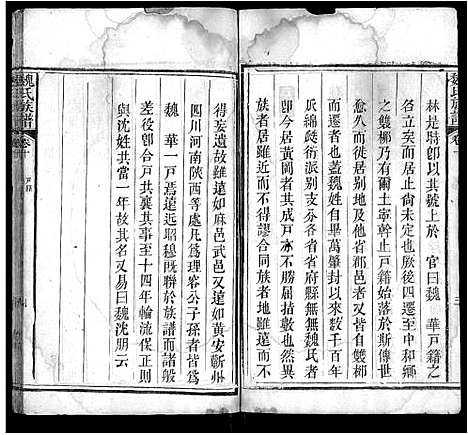 魏氏族譜
卷首
林是時卽以其號上於　官曰魏　華戸籍之
立矣而居止尚未定也
之雙梛乃有爾土寧幹止戸籍於斯傳世
愈久而遷居别地及他省他邑者自雙梛
而遷者也蓋魏姓自畢萬肇封以來數千百年
瓜綿瓞衍派别支分各省省府縣無無魏氏者
卽今居黄岡者其成戸亦不卽屈指數也然異
族者居雖近而不得謬合同族者居雖遠而不
得妄遺故雖遠如麻邑武邑又遠如黄安蘄州
四川河南陝西等處凡為理容公子孫者皆為
魏　華一戸焉遠近昭穆既聯於族譜而諸般
差役卽合戸共襄其事至十四年輪流保正則
與沈姓共當一年故其名又易曰魏沈朋云
魏氏族譜